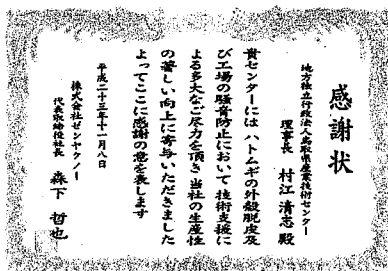 感謝状
地方独立行政法人鳥取県産業技術センター
理事長 村江清志殿
貴センターにはハトムギの外殻脱皮及
び工場の騒音防止において技術支援に
よる多大なご尽力を頂き当社の生産性
の著しい向上に寄与いただきました
よってここに感謝の意を表します
平成二十三年十一月八日
株式会社ゼンヤクノー
代表取締役社長 森下哲也